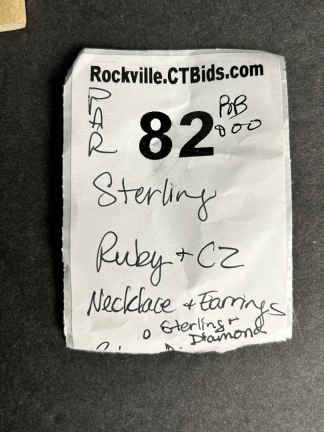 Rockville.CTBids.com
PAR
82
BB
800
Sterling
Ruby + CZ
Necklace + Earrings
Sterling +
Diamond